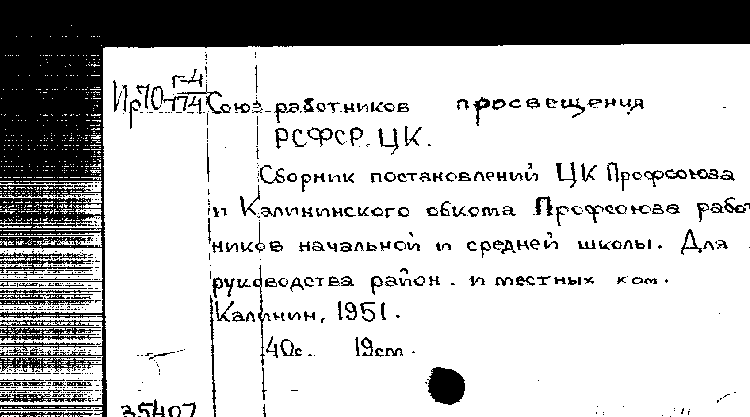 Г-4
Ир70-174 Союз работников просвещения
РСФСР. ЦК.
Сборник постановлений ЦК Профсоюза
и Калининского обкома Профсоюза работ
ников начальной и средней школы. Для
руководства район. и местных ком.
Калинин, 1951.
40с. 19см.
35407